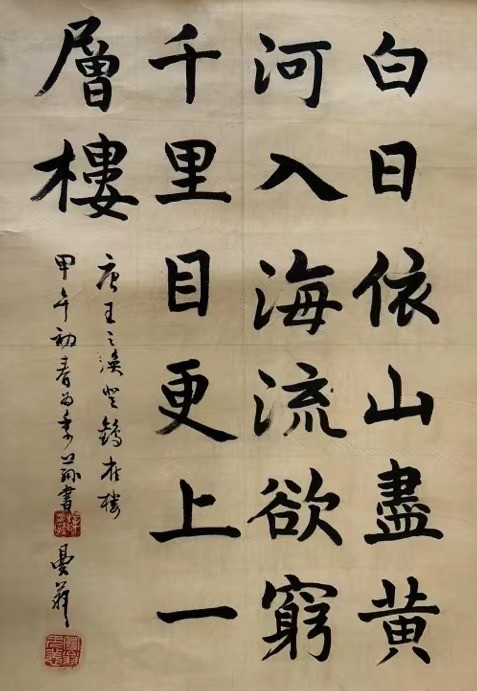 白日依山盡黃
河入海流欲窮
千里目更上一
層樓
唐王之渙登鸛雀樓
甲午初春